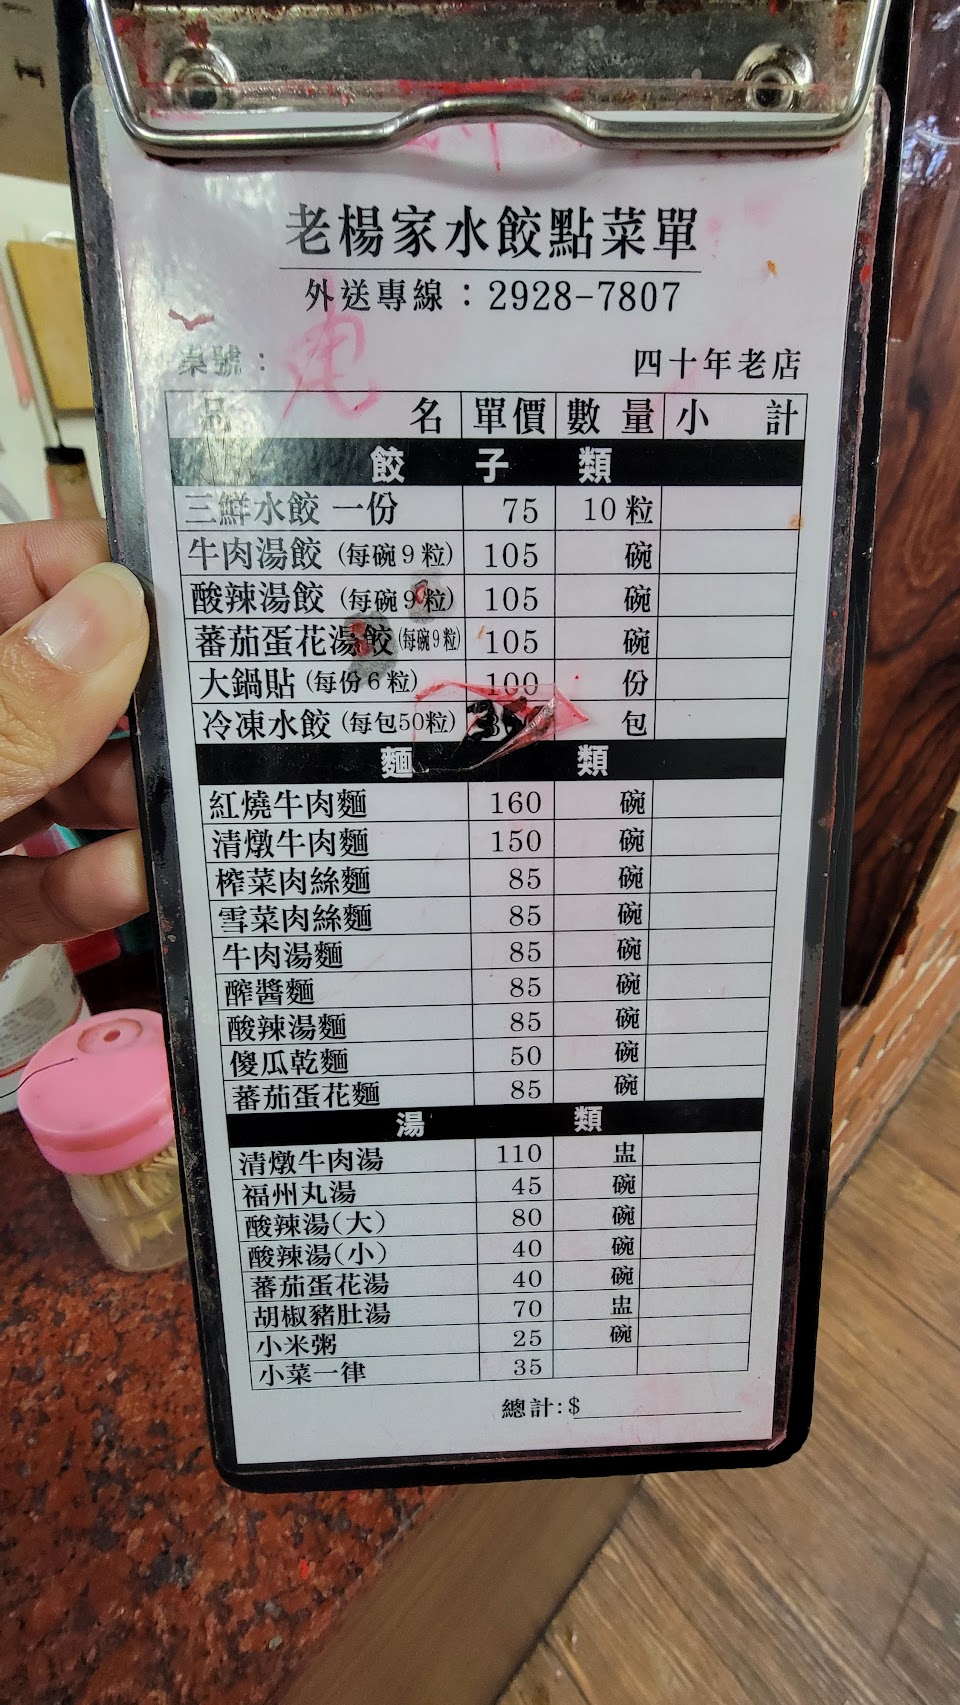 老楊家水餃點菜單
外送專線：2928-7807
桌號： 四十年老店
品名 單價 數量 小計
餃子類
三鮮水餃 一份 75 10粒
牛肉湯餃 (每碗9粒) 105 碗
酸辣湯餃 (每碗9粒) 105 碗
蕃茄蛋花湯餃 (每碗9粒) 105 碗
大鍋貼 (每份6粒) 100 份
冷凍水餃 (每包50粒) 包
麵類
紅燒牛肉麵 160 碗
清燉牛肉麵 150 碗
榨菜肉絲麵 85 碗
雪菜肉絲麵 85 碗
牛肉湯麵 85 碗
醡醬麵 85 碗
酸辣湯麵 85 碗
傻瓜乾麵 50 碗
蕃茄蛋花麵 85 碗
湯類
清燉牛肉湯 110 盅
福州丸湯 45 碗
酸辣湯(大) 80 碗
酸辣湯(小) 40 碗
蕃茄蛋花湯 40 碗
胡椒豬肚湯 70 盅
小米粥 25 碗
小菜一律 35
總計:$